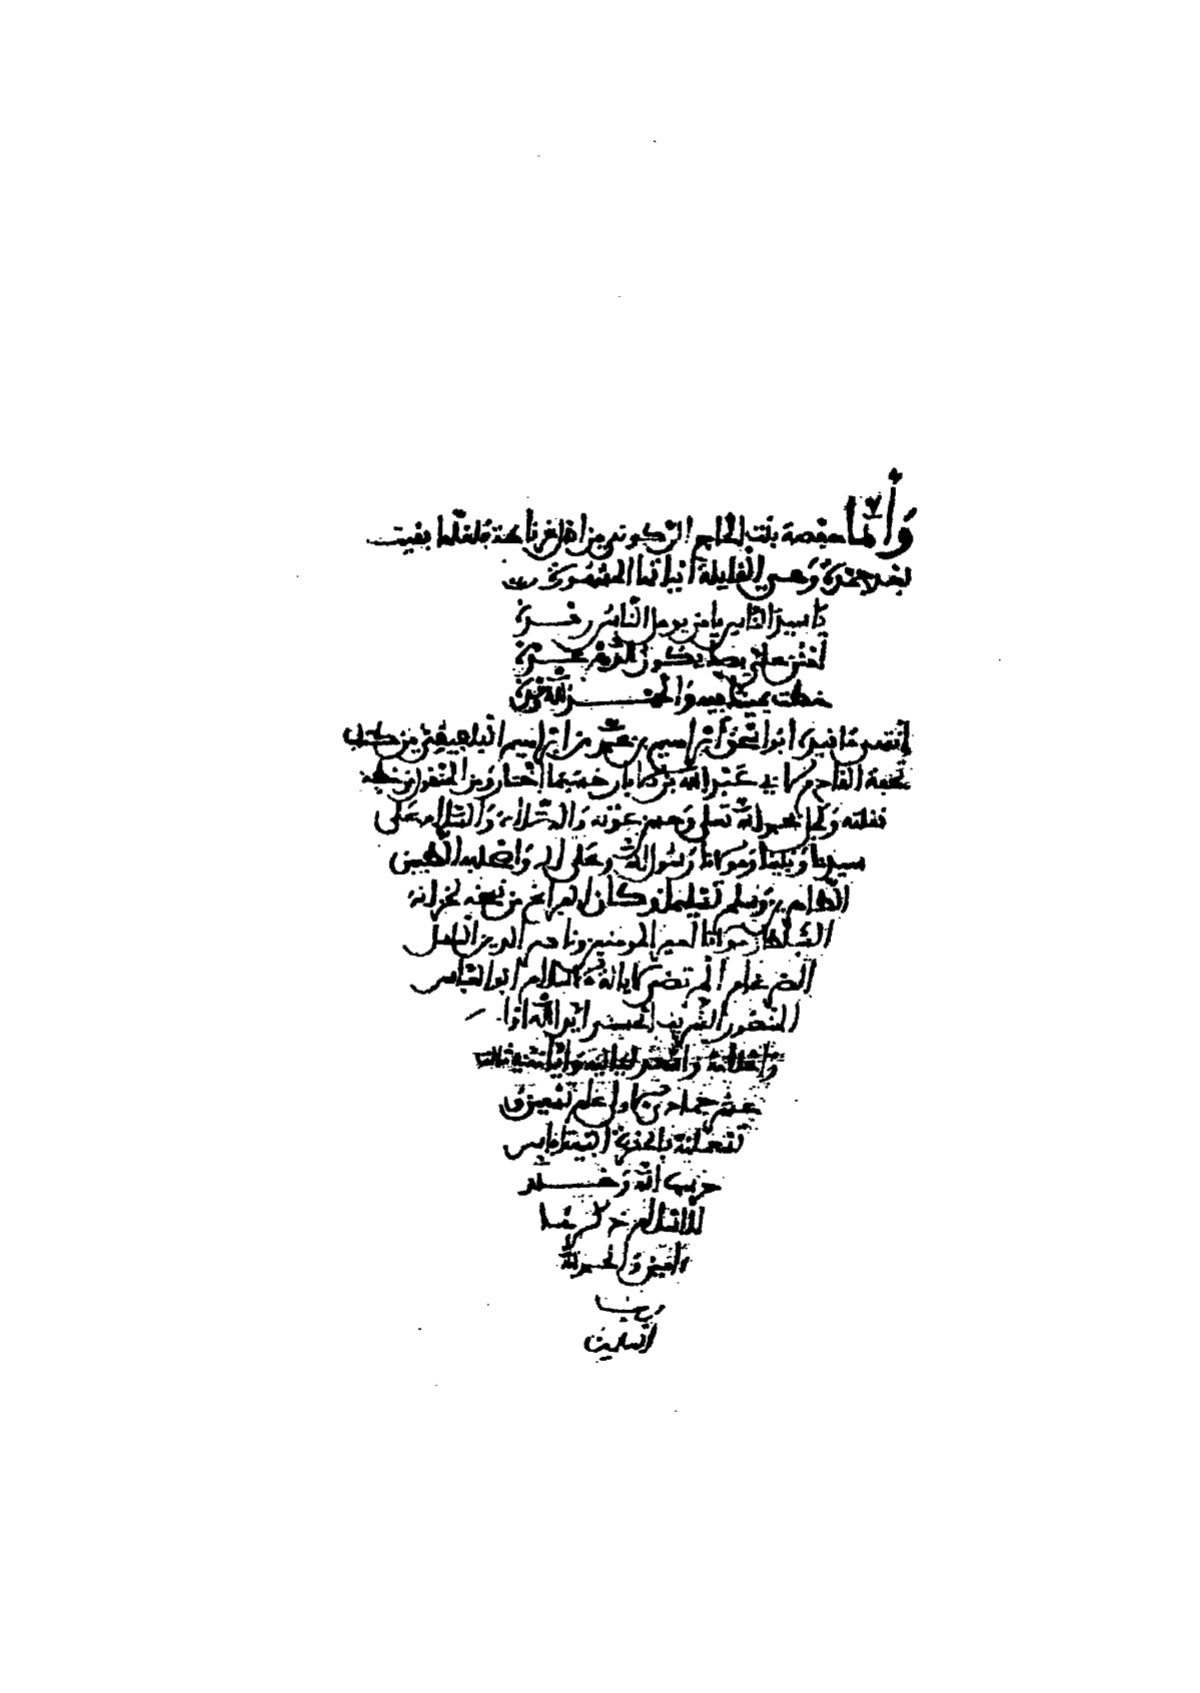 وَأَمَّا حفصة بنت الحاج الركوني من أهل غرناطة فلعلها بقيت
بعد حمدة وهي القليلة أبياتها المشهورة
يا سيد الناس يا من يؤمل الناس رفده
أمنن علي بصك يكون للدهر عده
خطت يمينك فيه والحمد لله وحده
انتهى ما قيد أبو إسحق إبراهيم بن محمد بن إبراهيم البلفيقي من كتاب
تحفة القادم لأبي عبد الله بن الأبار حسبما اختاره ومن المنقول من خطه
نقلته وكمل بحمد الله تعلى وحسن عونه والصلاة والسلام على
سيدنا ونبينا ومولانا رسول الله وعلى اله وأصحابه الطيبين
الطاهرين وسلم تسليما وكان الفراغ من نسخه لخزانة
السلطان مولانا أمير المومنين وناصر الدين الباسل
الضرغام المرتضى لإيالة الاسلام أبو العباس
المنصور الشريف الحسني أيد الله أوا
وأعلامه لياليه وأيامه ثالث
عشر جمادى الأولى عام تسعين و
تسعمائة بالحضرة
حزب الله
للاسلام
امين والحمد لله
رب
العالمين